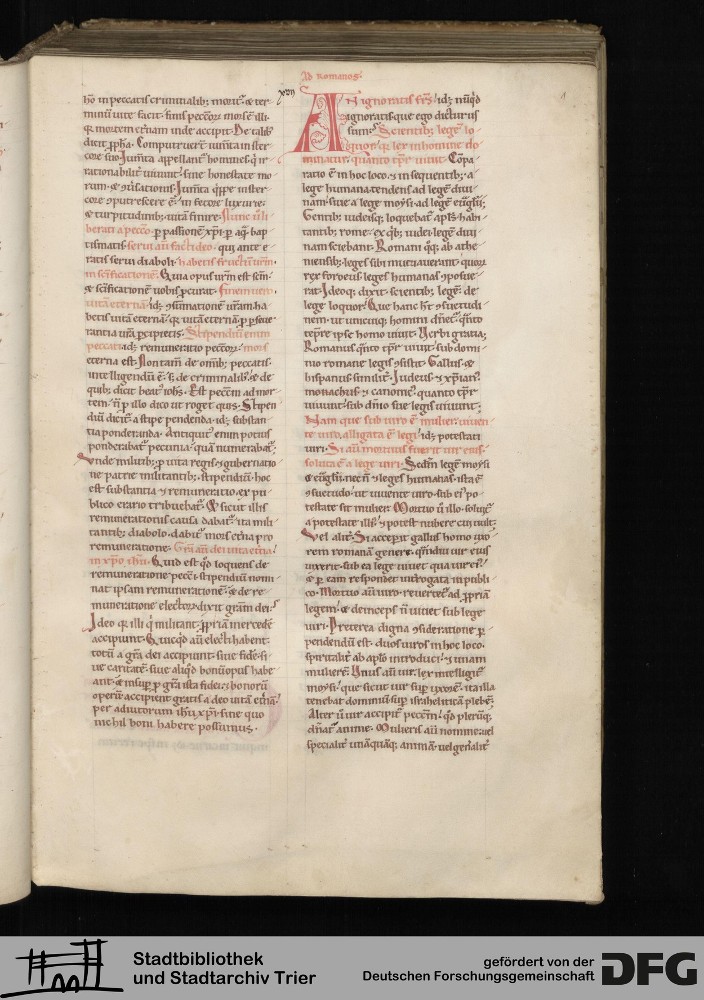 Ad romanos.
hō in peccatis criminalib; moritᷣ & ter
minū uite facit. finis peccōꝝ mors ē illi
q; mortem et̄nam inde accipit. De talib;
dicit ꝓpħa. Computruerᷣt iumta in ster
core suo. Iumta appellantᷣ homines qͥ ir
rationabilit uiuunt. sine honestate mo
core putrescere ē. in fecore luxurie.
& turpitudinib; uitā finire. Nunc ū li
berati a pecco. p passionē xp̄i. p aq̄ bap
tismatis. serui aū facti deo. qui ante e
ratis serui diaboli. habetis fructū urm̄
in scificationē. Quia opus urm̄ est scm̄.
& scificationē uobis pcurat. Finem uero
uitā eternā. id; summationē urām ha
betis uitā eternā.
rantia urā pcipietis. Stipendiū enim
peccati. id; remuneratio peccoꝝ. mors
eterna est. Non tam̄ de omib; peccatis
intelligendū ē. s; de criminalib;. & de
quib; dicit beatᷣ iohs. Est peccm̄ ad mor
tem. n̄ p illo dico ut roget quis. Stipen
diū dicitᷣ a stipe pendenda. id; substan
tia ponderanda. Antiquitᷣ enim potius
ponderabatᷣ pecunia. quā numerabatᷣ.
Unde militib; p uita regis & gubernatio
ne patrie militantib; stipendiū. hoc
est substantia & remuneratio. ex pu
blico erario tribuebatᷣ. Et sicut illis
remunerationis causa dabatᷣ. ita mili
tantib; diabolo. dabitᷣ mors et̄na pro
remuneratione. Gr̄a aū dei uita et̄na
in xp̄o ihū. Quid est qd loquens de
remuneratione pecci stipendiū nomi
nat ipsam remunerationē. & de re
muneratione electoꝝ dixit gratiā dei.
Ideo q; illi q militant. ꝓpriam mercedē
accipiunt. Quicqd aū electi habent.
totū a gr̄a dei accipiunt. siue fidē. si
ue caritatē. siue aliqd bonū opus habe
ant. & insup p gr̄a ista fidei & bonorū
operū accipient gratis a deo uitā et̄nā.
per adiutorium ihū xp̄i. sine quo
nichil boni habere possumus.
xvii
An ignoratis frs̄. id; nūqd
ignoratis que ego dicturus
sum. Scientib; legē lo
quor. q; lex in homine do
minatur. quanto tp̄r uiuit. Cōpa
ratio ē in hoc loco. & in sequentib;. a
lege humana tendens ad legē diui
nam. siue a lege moysi ad legē eu̅glii.
Gentib; iudeisq; loquebatᷣ apls̄ habi
tantib; rome. ex qͥb; iudei legē diui
nam sciebant. Romani q̄q; ab athe
niensib; leges sibi mutuauerant. quoꝝ
rex foroeus leges humanas posue
rat. Ideoq; dixit. scientib; legē. de
lege loquor. Que hanc ht̄ suetudi
nem. ut unicuiq; homini dnetᷣ. qn̄to
tēpre ipse homo uiuit. Uerbi gratia.
Romanus qn̄to tp̄r uiuit. sub domi
nio romane legis sistit. Gallus &
hispanus similit. Iudeus & xp̄ianᷣ.
monachus & canonicᷣ. quanto tp̄r
uiuunt. sub dn̄io sue legis uiuunt.
Nam que sub uiro ē mulier. uiuen
te uiro. alligata ē legi. id; potestati
uiri. Si aū mortuus fuerit uir eius.
soluta ē a lege uiri. Scdm̄ legē moysi
& eu̅glii. necn̄ & leges humanas. ista ē
suetudo. ut uiuente uiro. sub eiᷣ po
testate sit mulier. Mortuo ū illo. soluitᷣ
a potestate illiᷣ. & potest nubere cui uult.
Vel alit. Si acceperit gallus homo uxo
rem romanā genere. quādiu uir eius
uixerit. sub ea lege uiuet qua uir eiᷣ.
& p eam respondet int̄rogata in publi
co. Mortuo aū uiro. reuertetᷣ ad ꝓpriā
legem. & deinceps n̄ uiuet sub lege
uiri. Preterea digna sideratione p
pendendū est. duos uiros in hoc loco.
spiritalit ab aplo introduci. & unam
mulierē. Unus aū uir. lex intelligitᷣ
moysi. que sicut uir sup uxorē. ita illa
tenebat dominiū sup israhelitica plebē.
Alter ū uir accipitᷣ peccm̄. qd plerūq;
dn̄atᷣ anime. Mulieris aū nomine. uel
specialit unāquāq; animā. uel gen̄alit
Stadtbibliothek
und Stadtarchiv Trier
gefördert von der
Deutschen Forschungsgemeinschaft
DFG